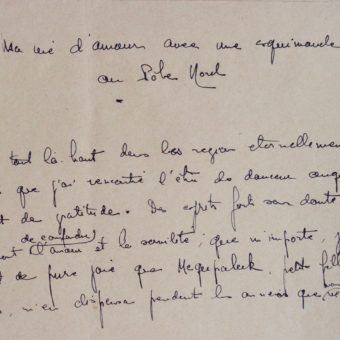 Ma vie d'amour avec une esquimaude
au Pôle Nord
tout là-haut dans les regions eternellement
que j'ai rencontré l'être de douceur auquel
de gratitude. Des esprits forts sans doute
de confondre
l'amour et la servilité; que m'importe,
de pure joie que Mequpaluk, petite fille
m'en dispensa pendant les années que